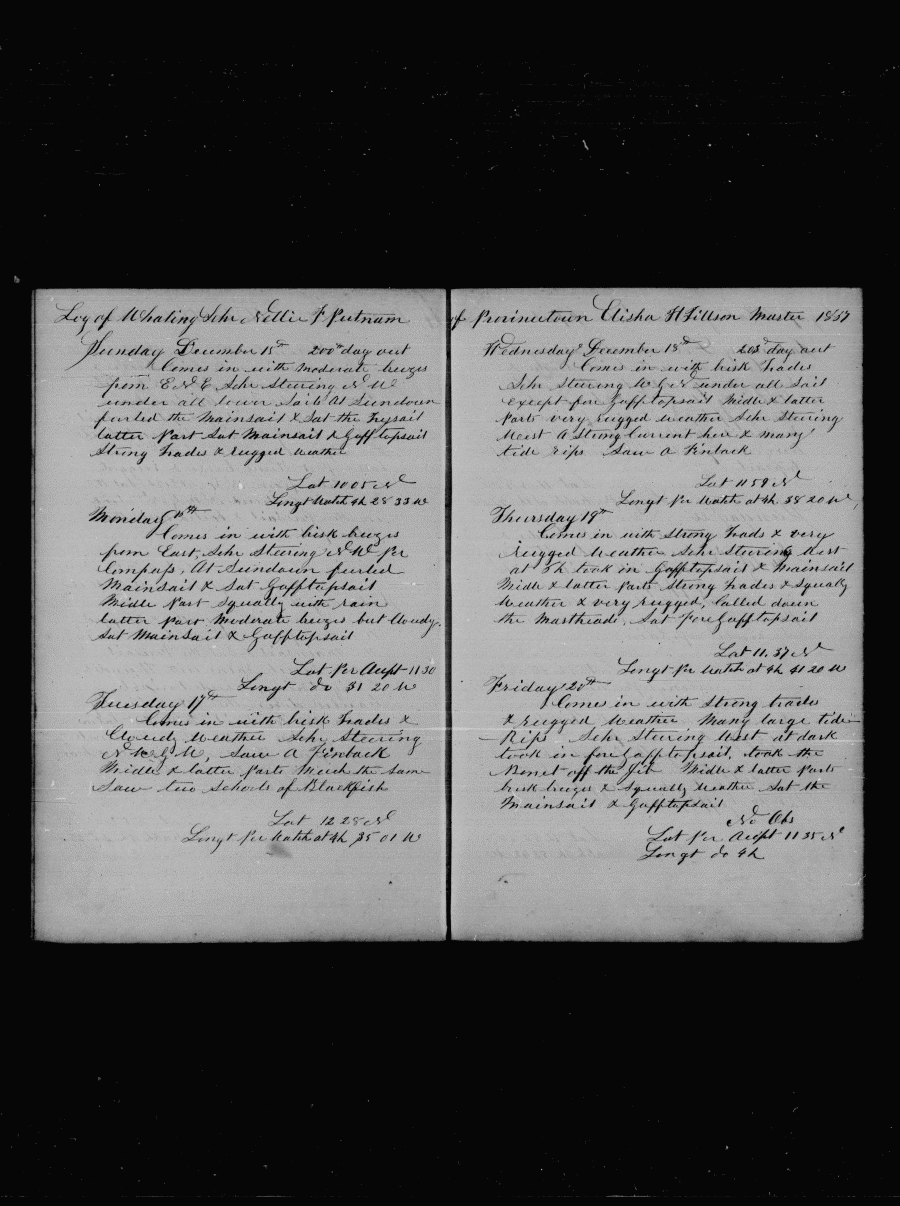 Log of Whaling Schr Nellie F Putnam
Sunday December 15th 200th day out
Comes in with moderate breezes
from E N E Schr Steering N W
under all lower Sails At Sundown
furled the Mainsail & Sat the trysail
latter Part Sat Mainsail & Gafftopsail
Strong trades & rugged weather
Lat 10 05 N
Longt Watch 4h 28 33 W
Monday 16th
Comes in with brisk breezes
from East, Schr Steering N W Per
Compass, At Sundown furled
Mainsail & Sat Gafftopsail
Midle Part Squally with rain
latter Part Moderate breezes but Cloudy.
Sat Mainsail & Gafftopsail
Lat Per Acupt 11 30
Longt do 31 20 W
Tuesday 17th
Comes in with brisk trades &
Cloudy weather Schr Steering
N W G W, Saw A Finback
Midle & latter Parts Much the same
Saw two Schools of Blackfish
Lat 12 28 N
Longt Per Watch at 4h 35 01 W
of Provincetown Elisha H Tillson Master 1867
Wednesday December 18th 203d day out
Comes in with brisk trades
Schr Steering W G N under all Sail
except fore Gafftopsail Midle & latter
Parts very rugged weather Schr Steering
West A Strong Current here & many
tide rips Saw A Finback
Lat 11 59 N
Longt Per Watch at 4h 38 20 W
Thursday 19th
Comes in with Strong trads & very
rugged weather Schr Steering West
at 5h took in Gafftopsail & Mainsail
Midle & latter Parts Strong trades & Squally
Weather & very rugged, Called down
the Mastheads, Sat fore Gafftopsail
Lat 11.37 N
Longt Per Watch at 4h 41 20 W
Friday 20th
Comes in with Strong trades
& rugged weather Many large tide
Rips Schr Steering West at dark
took in fore Gafftopsail, took the
Bonet off the Jib Midle & latter Parts
brisk breezes & Squally weather Sat the
Mainsail & Gafftopsail
No Obs
Lat Per Acupt 11 35 N
Longt do 4h